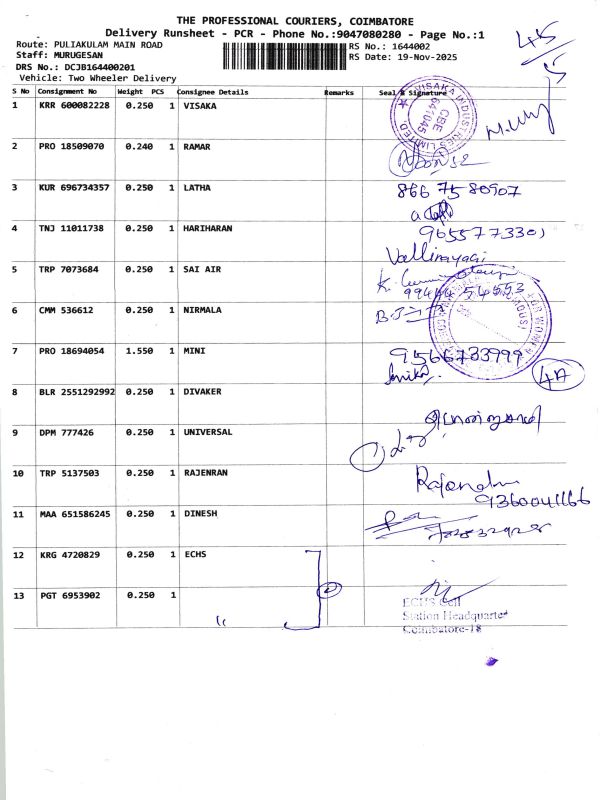 THE PROFESSIONAL COURIERS, COIMBATORE
Delivery Runsheet - PCR - Phone No.:9047080280 - Page No.:1
Route: PULIAKULAM MAIN ROAD
RS No.: 1644002
Staff: MURUGESAN
RS Date: 19-Nov-2025
DRS No.: DCJB164400201
Vehicle: Two Wheeler Delivery
45
S No Consignment No Weight PCS Consignee Details Remarks Seal & Signature
1 KRR 600082228 0.250 1 VISAKA
VISAKA INDUSTRIES LIMITED
CBE
641045
2 PRO 18509070 0.240 1 RAMAR
3 KUR 696734357 0.250 1 LATHA 8667580907
4 TNJ 11011738 0.250 1 HARIHARAN 9655773301
Vallinayagi
5 TRP 7073684 0.250 1 SAI AIR
6 CMM 536612 0.250 1 NIRMALA
7 PRO 18694054 1.550 1 MINI 9566733999
4A
8 BLR 2551292992 0.250 1 DIVAKER
9 DPM 777426 0.250 1 UNIVERSAL
10 TRP 5137503 0.250 1 RAJENRAN
9360041166
11 MAA 651586245 0.250 1 DINESH
12 KRG 4720829 0.250 1 ECHS
13 PGT 6953902 0.250 1 "
2
ECHS Cell
Station Headquarter
Coimbatore-18